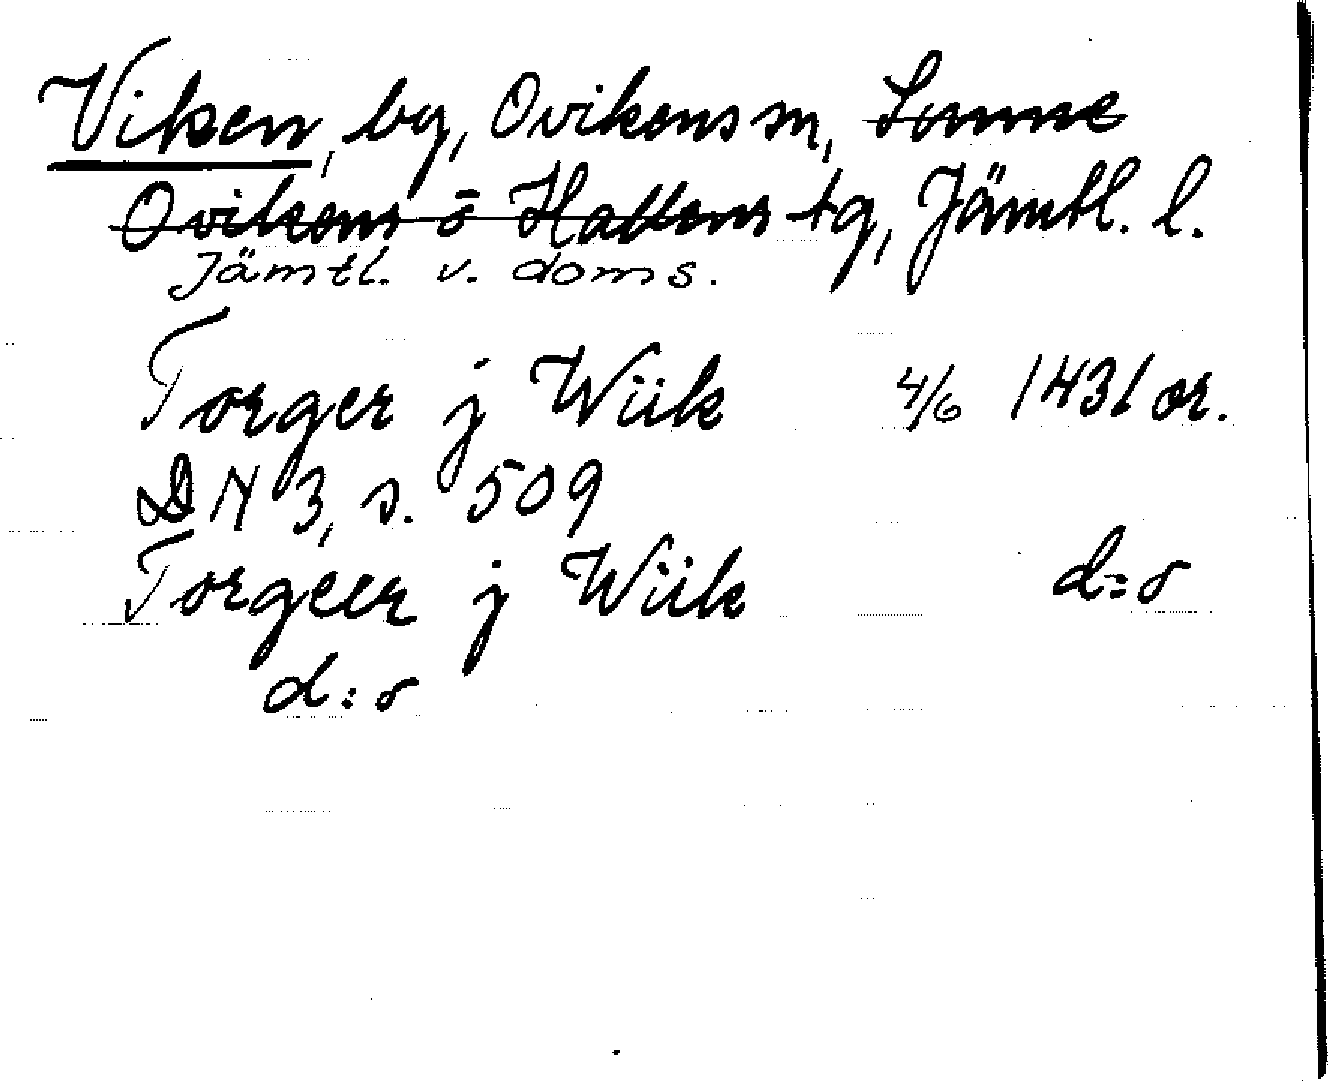 Viken, by, Ovikens sn, Sunne
Ovikens o Hallens tg, Jämtl. l.
Jämtl. v. doms.
Torger j Wiik 4/6 1431 or.
DN 3, s. 509
Torgeer j Wiik d:o
d:o